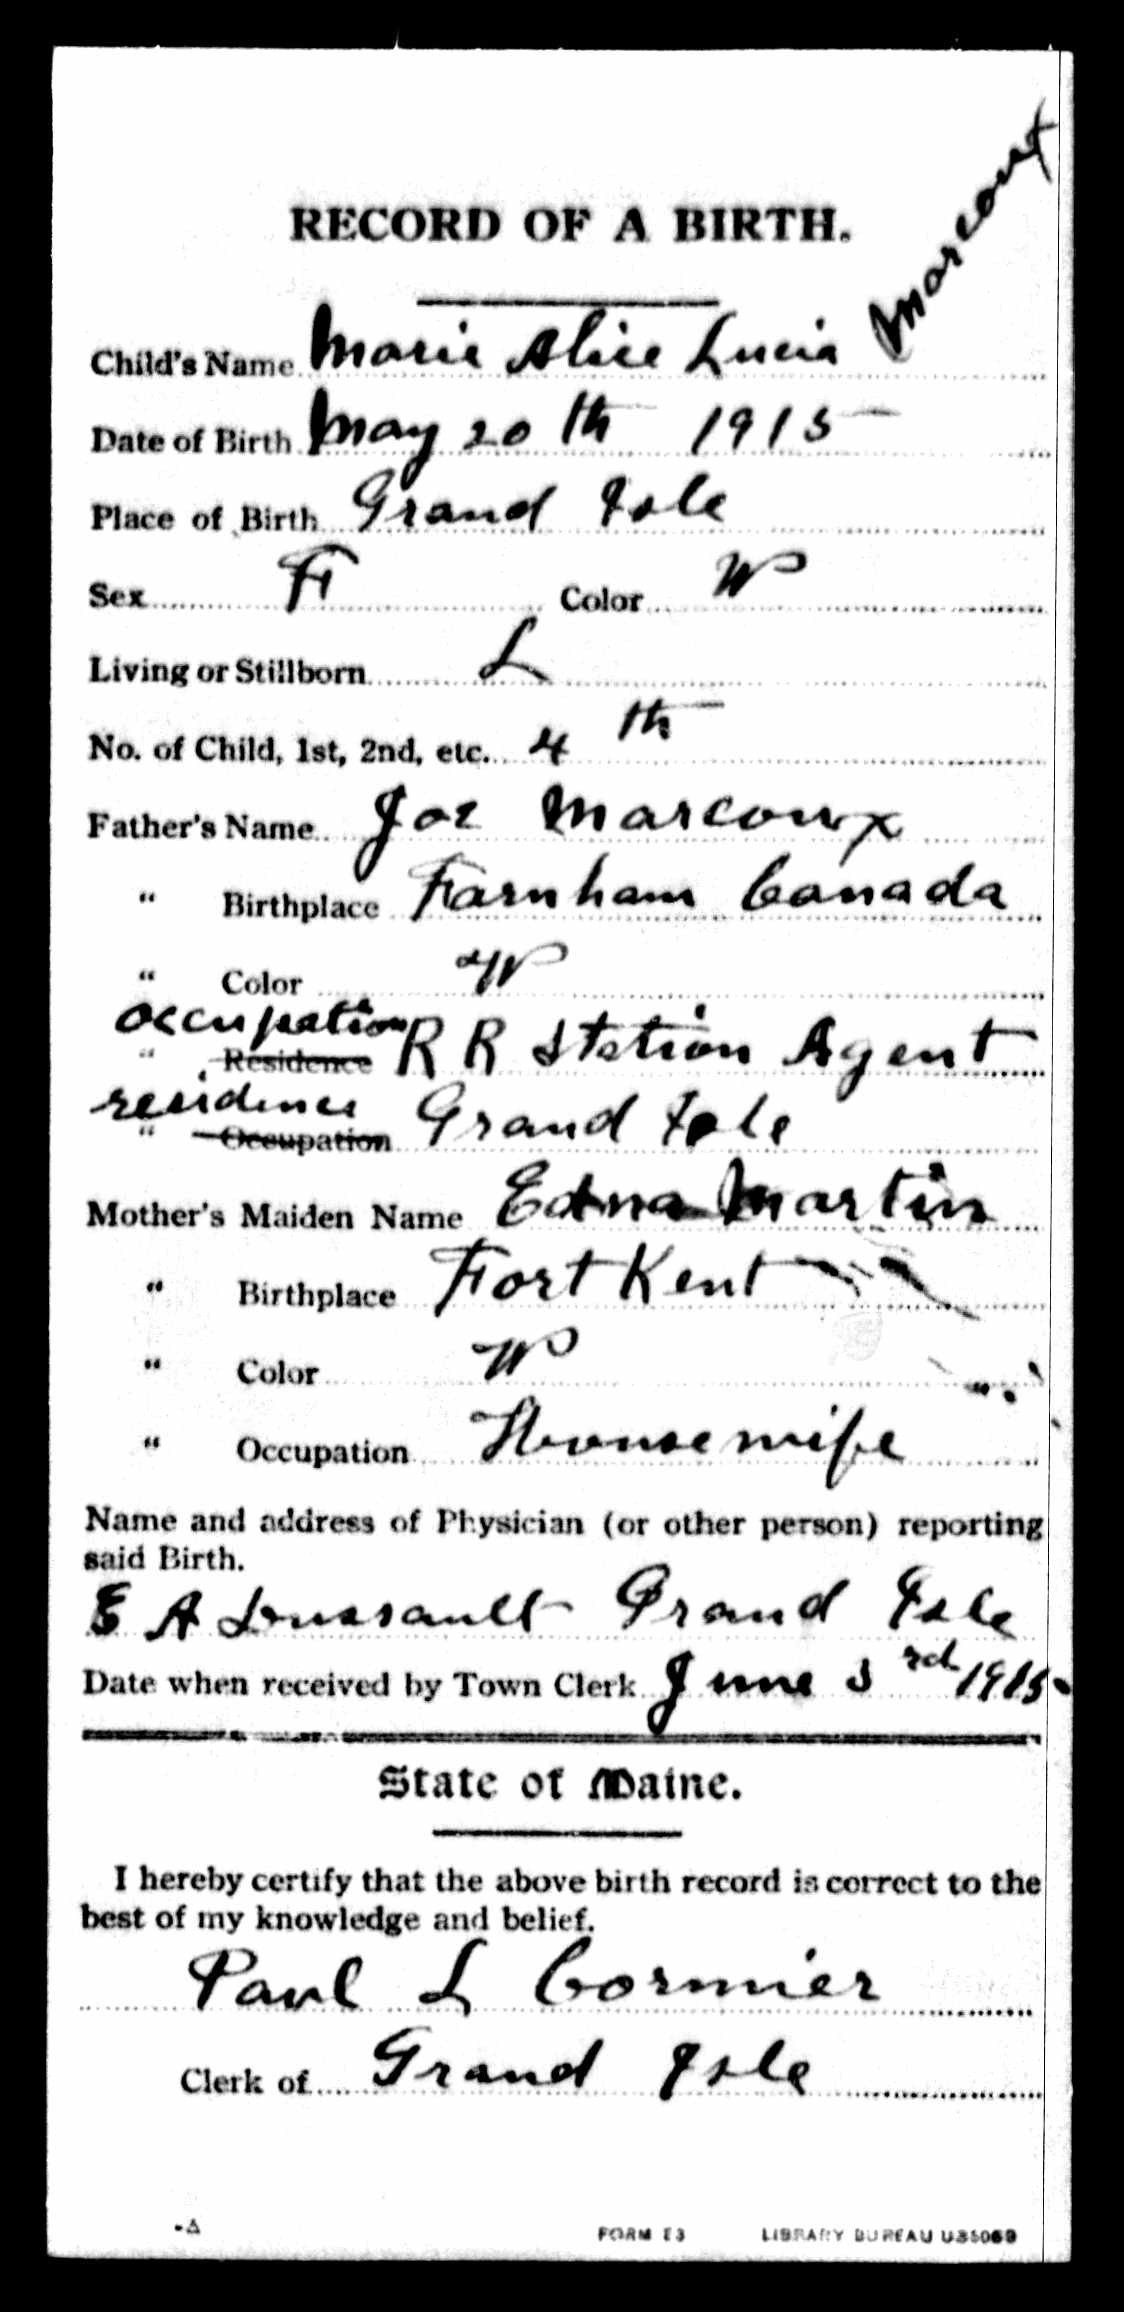 RECORD OF A BIRTH.
Child's Name Marie Alice Lucia Marcoux
Date of Birth May 20th 1915
Place of Birth Grand Isle
Sex F Color W
Living or Stillborn L
No. of Child, 1st, 2nd, etc. 4th
Father's Name Joe Marcoux
" Birthplace Farnham Canada
" Color W
occupation
" Residence R R Station Agent
residence
" Occupation Grand Isle
Mother's Maiden Name Edna Martin
" Birthplace Fort Kent
" Color W
" Occupation Housewife
Name and address of Physician (or other person) reporting
said Birth.
E A Grand Isle
Date when received by Town Clerk June 3rd 1915
State of Maine.
I hereby certify that the above birth record is correct to the
best of my knowledge and belief.
Paul L Cormier
Clerk of Grand Isle
FORM E3 LIBRARY BUREAU